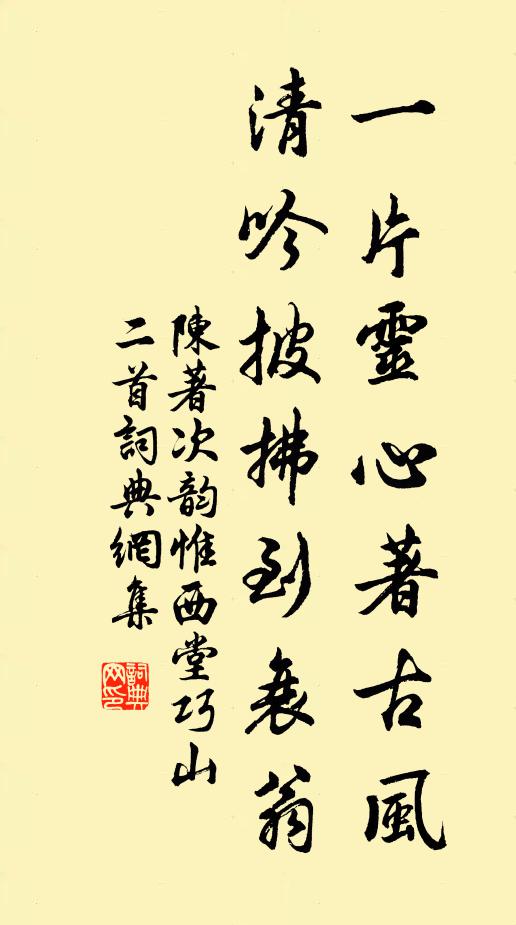 一片靈心著古風
清吟披拂到衰翁
陳著次韵惟西堂巧山
二首詞典網集
詞典
网印